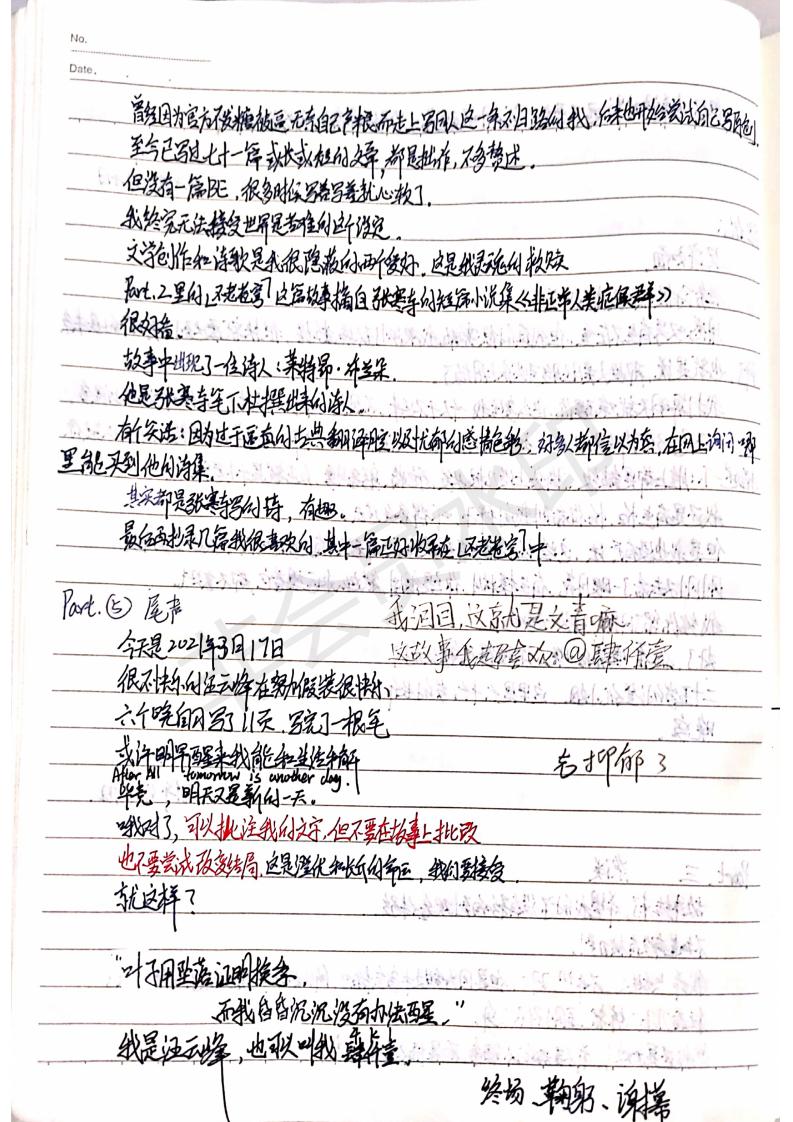 No.
Date.
曾经因为官方不发糖被逼无奈自己产粮而走上写同人这一条不归路的我，后来也开始尝试自己写原创.
至今已写过七十一篇或长或短的文章，都是拙作，不多赘述.
但没有一篇BE，很多时候写着写着就心软了.
我终究无法接受世界是苦难的这个设定.
文学创作和诗歌是我很隐蔽的两个爱好. 这是我灵魂的救赎
Part.2里的「不老老考」这篇故事摘自张寒寺的短篇小说集《非正常人类症候群》
很好看.
故事中出现了一位诗人：莱特昂·布兰朵.
他是张寒寺笔下杜撰出来的诗人.
有个笑话：因为过于逼真的古典翻译腔以及忧郁的感情色彩，好多人都信以为真，在网上询问哪
里能买到他的诗集.
其实都是张寒寺写的诗，有趣.
最后再抄录几篇我很喜欢的. 其中一篇正好收录在「不老老考」中.
Part.⑤ 尾声
我泪目，这就是文青嘛
今天是2021年3月17日
这故事我超喜欢@肆仟壹
很不快乐的汪云峰在努力假装很快乐
六个晚自习写了11页，写完了一根笔
或许明早醒来我能和生活和解
去抑郁了
After All tomorrow is another day.
毕竟，明天又是新的一天。
哦对了，可以批注我的文字，但不要在故事上批改
也不要尝试改变结局，这是澄优和长昕的命运，我们要接受.
就这样？
“叶子用坠落证明换季，
而我昏昏沉沉没有办法酉星.”
我是汪云峰，也可以叫我肆仟壹.
终场、鞠躬、谢幕